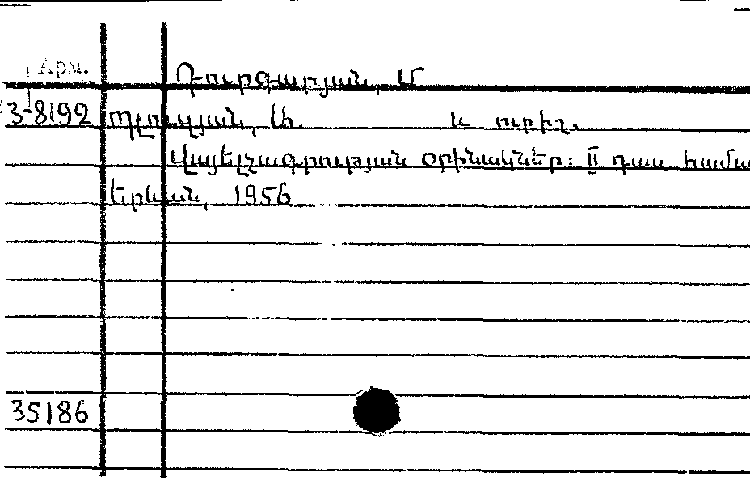 Արմ.
Դուրգարյան, Մ
3-8192 և ուրիշ.
Վայելչագրության օրինակներ: II դաս. համա
Երևան, 1956
35186